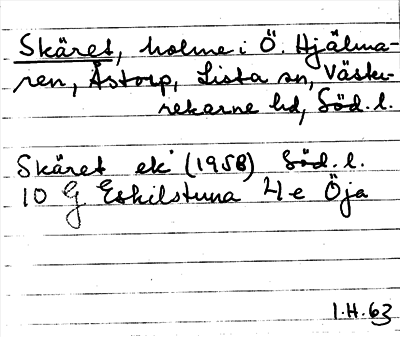 Skäret, holme i Ö. Hjälma-
ren, Åstorp, Lista sn, Väster-
rekarne hd, Söd. l.
Skäret ek (1958) Söd. l.
10 G Eskilstuna 4 e Öja
I.H. 63